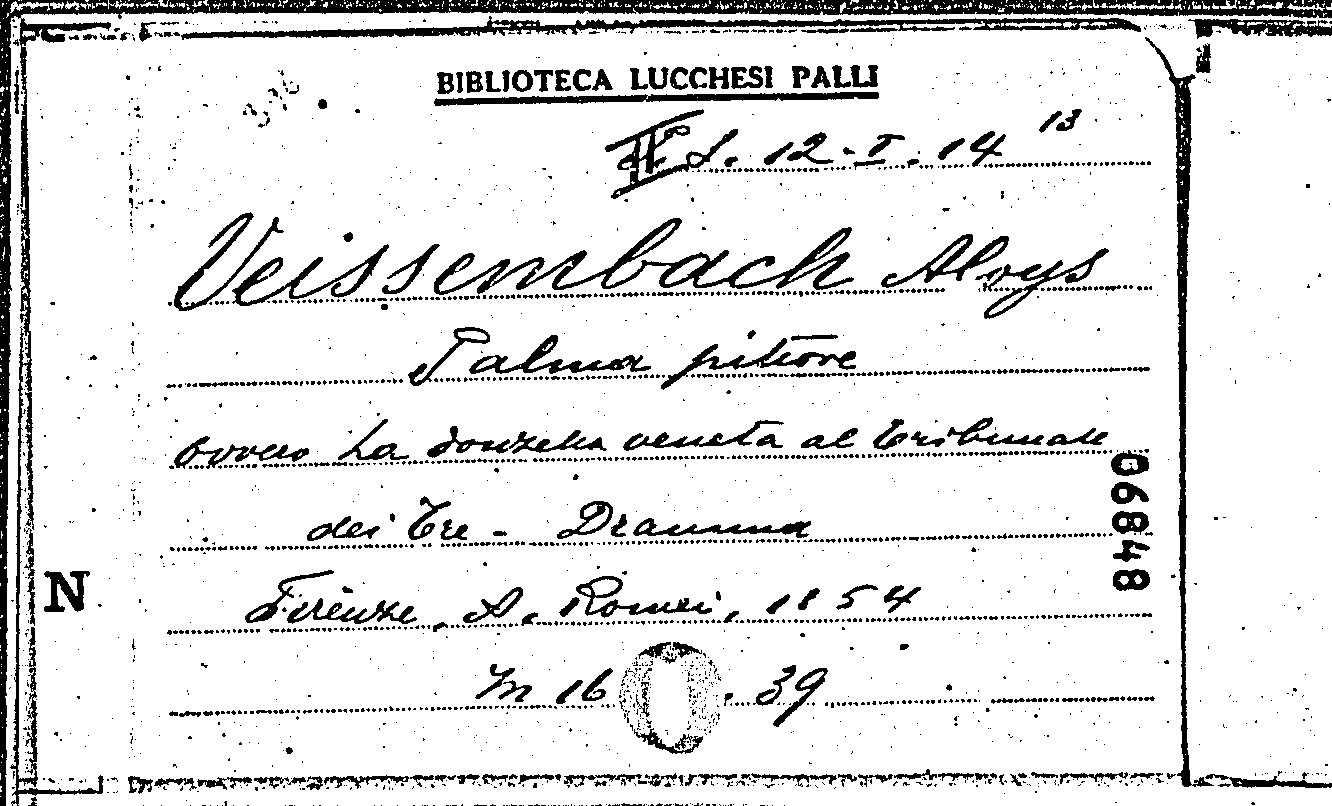 BIBLIOTECA LUCCHESI PALLI
S. 12-I. 14 13
Veissembach Aloys
Palma pittore
ovvero La donzella veneta al Tribunale
dei Tre - Dramma
Firenze, A. Romei, 1854
In 16 . 39
06848
N